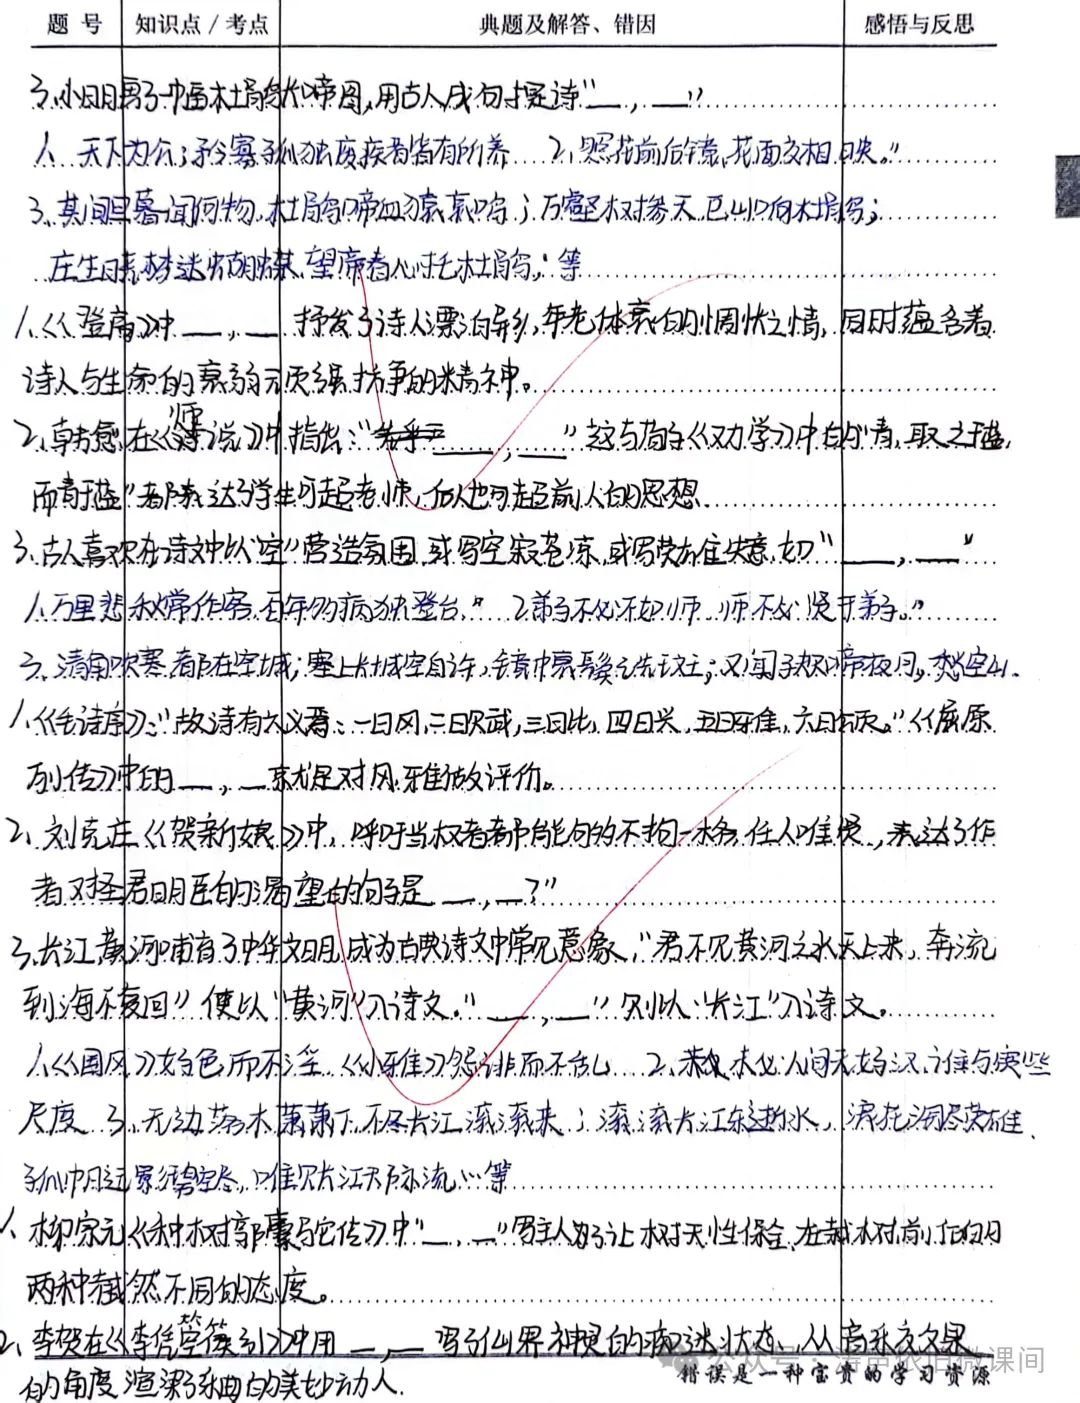 题 号 知识点 / 考点 典题及解答、错因 感悟与反思
3.小明写了一幅画杜鹃啼图,用古人成句提诗"__,__"
1. 天下为公;矜寡孤独废疾者皆有所养 2. 照花前后镜,花面交相映。"
3. 其间旦暮闻何物,杜鹃啼血猿哀鸣;万壑树参天,巴山响杜鹃;
庄生晓梦迷蝴蝶,望帝春心托杜鹃;等
1.《登高》中__,__ 抒发了诗人漂泊异乡,年老体衰的惆怅之情,同时蕴含着
诗人与生命的衰弱顽强抗争的精神。
2.韩愈在《师说》中指出:"__,__"这与荀子《劝学》中的"青,取之于蓝,
而青于蓝"都表达了学生可超老师,后人也可超前人的思想.
3.古人喜欢在诗文中以"空"营造氛围,或写空寂苍凉,或写荣难失意,如"__,__"
1.万里悲秋常作客,百年多病独登台。" 2弟子不必不如师,师不必贤于弟子。"
3.清角吹寒,都在空城;塞上长城空自许,镜中衰鬓已先斑;又闻子规啼夜月,愁空山.
1.《毛诗序》:"故诗有六义焉:一曰风,二曰赋,三曰比,四曰兴,五曰雅,六曰颂。"《屈原
列传》中的__,__就是对风、雅做评价。
2.刘克庄《贺新郎》中,呼吁当权者都能够的不拘一格,任人唯贤,表达了作
者对圣君明臣的渴望的句子是__,__?"
3.长江、黄河哺育了中华文明,成为古典诗文中常见意象,"君不见黄河之水天上来,奔流
到海不复回"便以"黄河"入诗文。"__,__"则以"长江"入诗文。
1.《国风》好色而不淫,《小雅》怨诽而不乱 2.未必人间无好汉,谁与宽些
尺度 3.无边落木萧萧下,不尽长江滚滚来;滚滚长江东逝水,浪花淘尽英雄.
孤帆远影碧空尽,唯见长江天际流...等
1.柳宗元《种树郭橐驼传》中"__,__"写主人为了让树天性保全,在栽树前后的
两种截然不同的态度。
2.李贺在《李凭箜篌引》中用__,__写引仙界神灵的痴迷状态,从音乐效果
的角度渲染了乐曲的美妙动人.
公众号 · 海声依旧微课间
错误是一种宝贵的学习资源